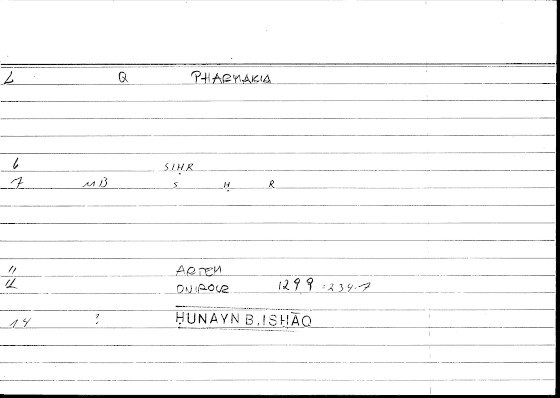 L Q PHARMAKIA
6 SIḤR
7 MB S Ḥ R
11 ARTEM
12 ONIROCR 1299 = 234.7
14 ? ḤUNAYN B. ISḤĀQ